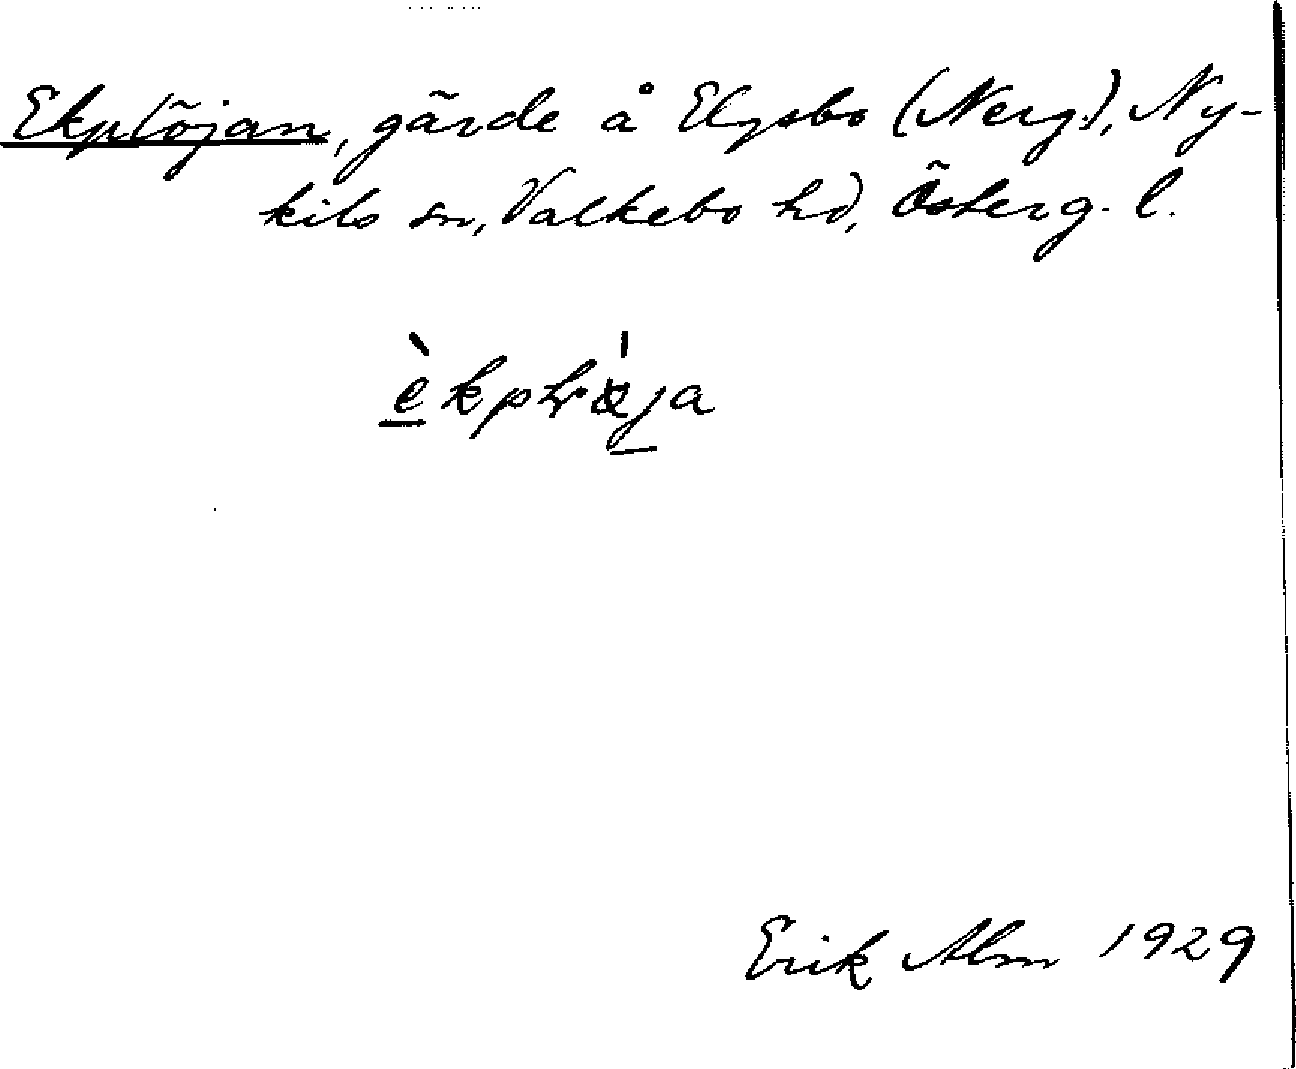 Ekplöjan, gärde å Elgsbo (Nerg.), Ny-
kils sn, Valkebo hd, Österg. l.
Erik Alm 1929